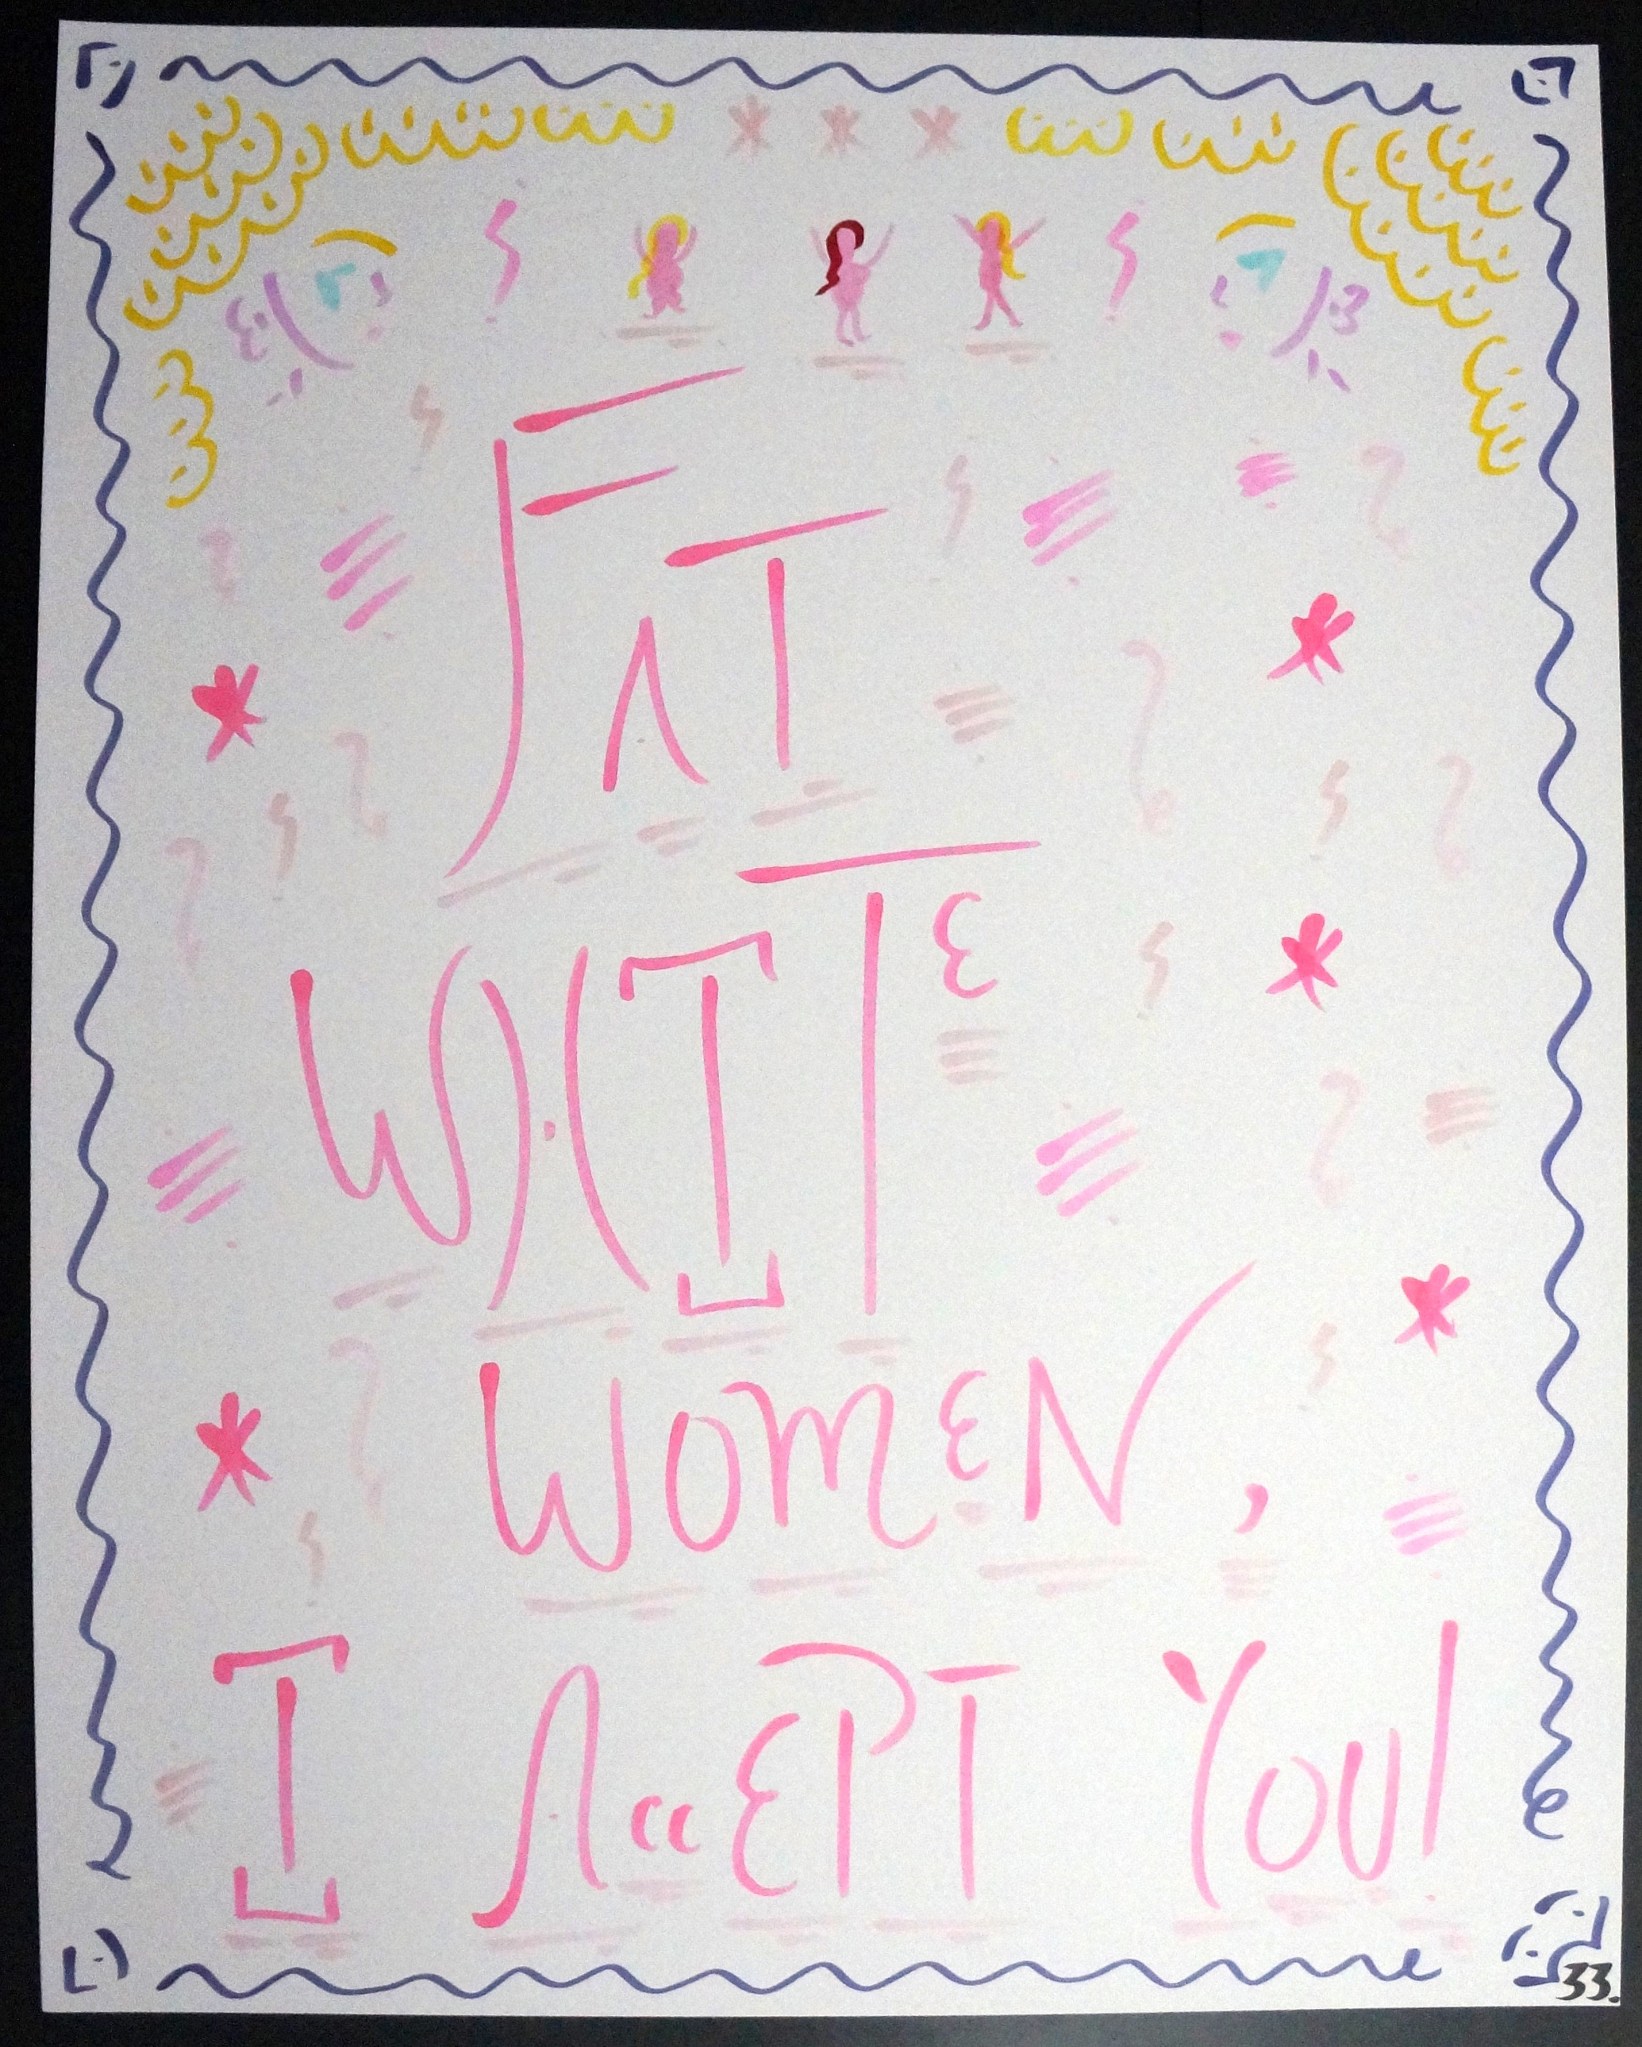 FAT
WHITE
WOMEN,
I ACCEPT YOU!
33.